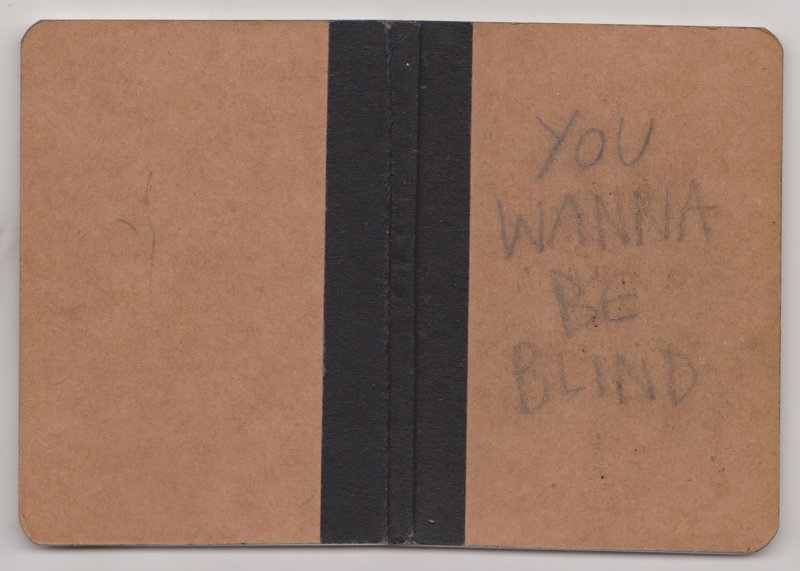 YOU
WANNA
BE
BLIND